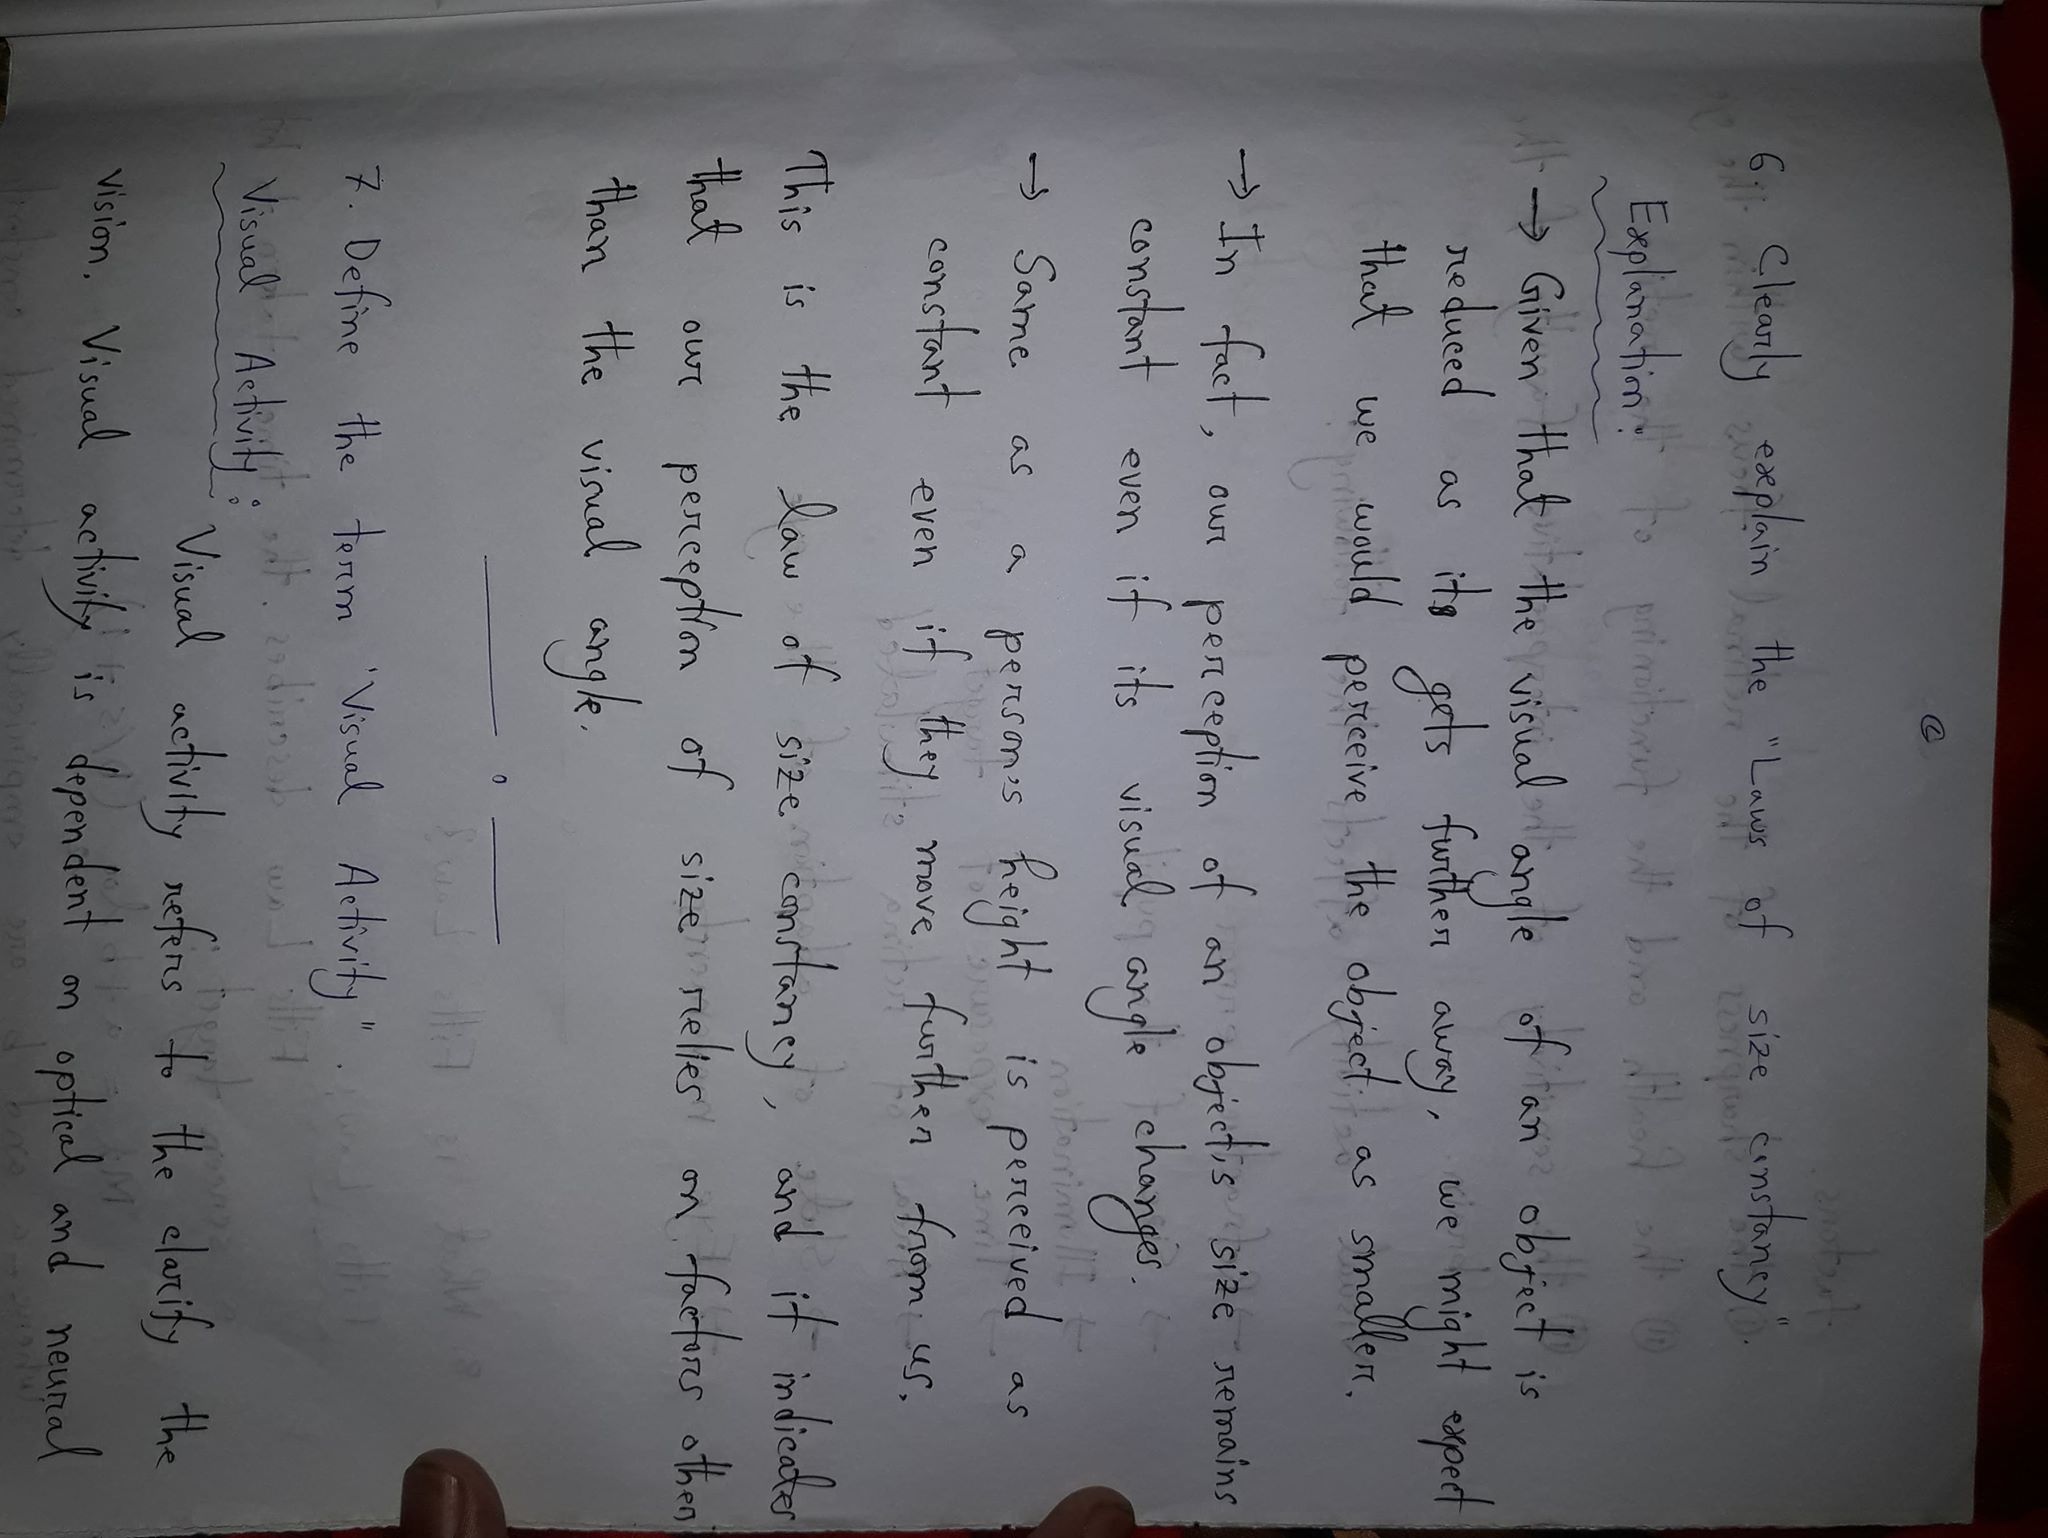 6. Clearly explain the "Laws of size constancy".
Explanation:
→ Given that the visual angle of an object is
reduced as its gets further away, we might expect
that we would perceive the object as smaller.
→ In fact, our perception of an object's size remains
constant even if its visual angle changes.
→ Same as a person's height is perceived as
constant even if they move further from us.
This is the law of size constancy, and it indicates
that our perception of size relies on factors other
than the visual angle.
7. Define the term "Visual Activity".
Visual Activity:
Visual activity refers to the clarify the
vision. Visual activity is dependent on optical and neural